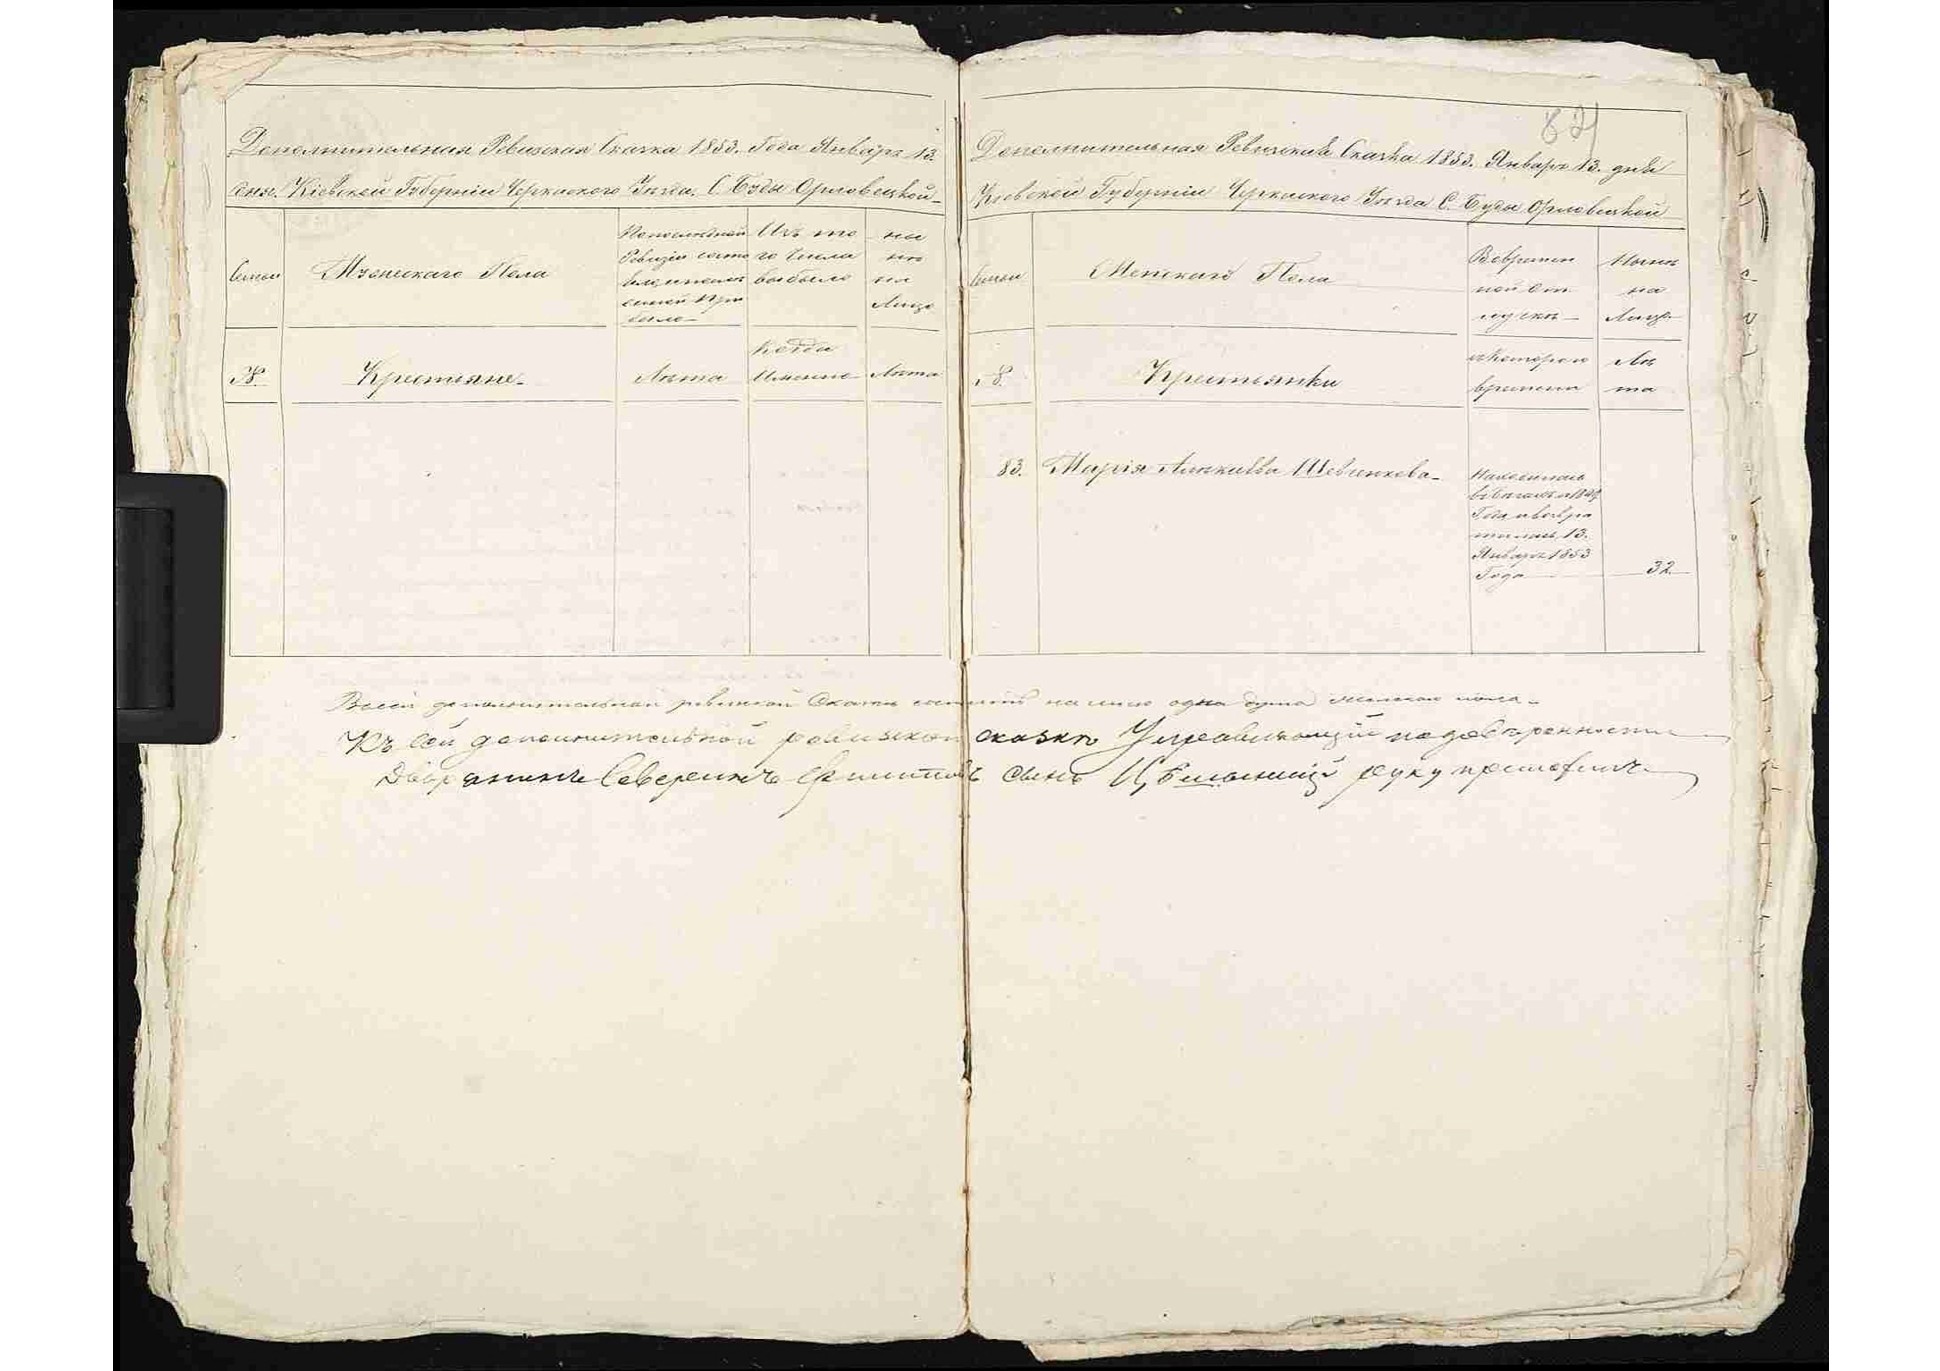 Дополнительная Ревизская Сказка 1853. Года Января 13.
дня. Кіевской Губерніи Черкаского Уѣзда. С. Буды Орловецкой
Семьи
Мужескаго Пола
По последней
Ревизіи состо
яло, и после
оной при
было
Изъ то
го числа
выбыло
ны
нѣ
на
Лицо
№
Крестьяне
Лѣта
Когда
Именно
Лѣта
82
Дополнительная Ревизская Сказка 1853. Января 13. дня
Кіевской Губерніи Черкаского Уѣзда С. Буды Орловецкой
Семьи
Женскаго Пола
Во времен
ной от
лучкѣ
Нынѣ
на
Лицо
№
Крестьянки
съ Котораго
времени
Лѣ
та
83. Марія Шевченкова
Находилась
въ бегахъ с
Года, и возвра
тилась 13.
Января 1853
Года
32
Всей дополнительной ревизкой Сказки состоитъ на лицо одна душа женскаго пола
Къ сей дополнительной ревизской сказкѣ Управляющій по доверенности
Дворянинъ Северинъ сынъ руку приложилъ